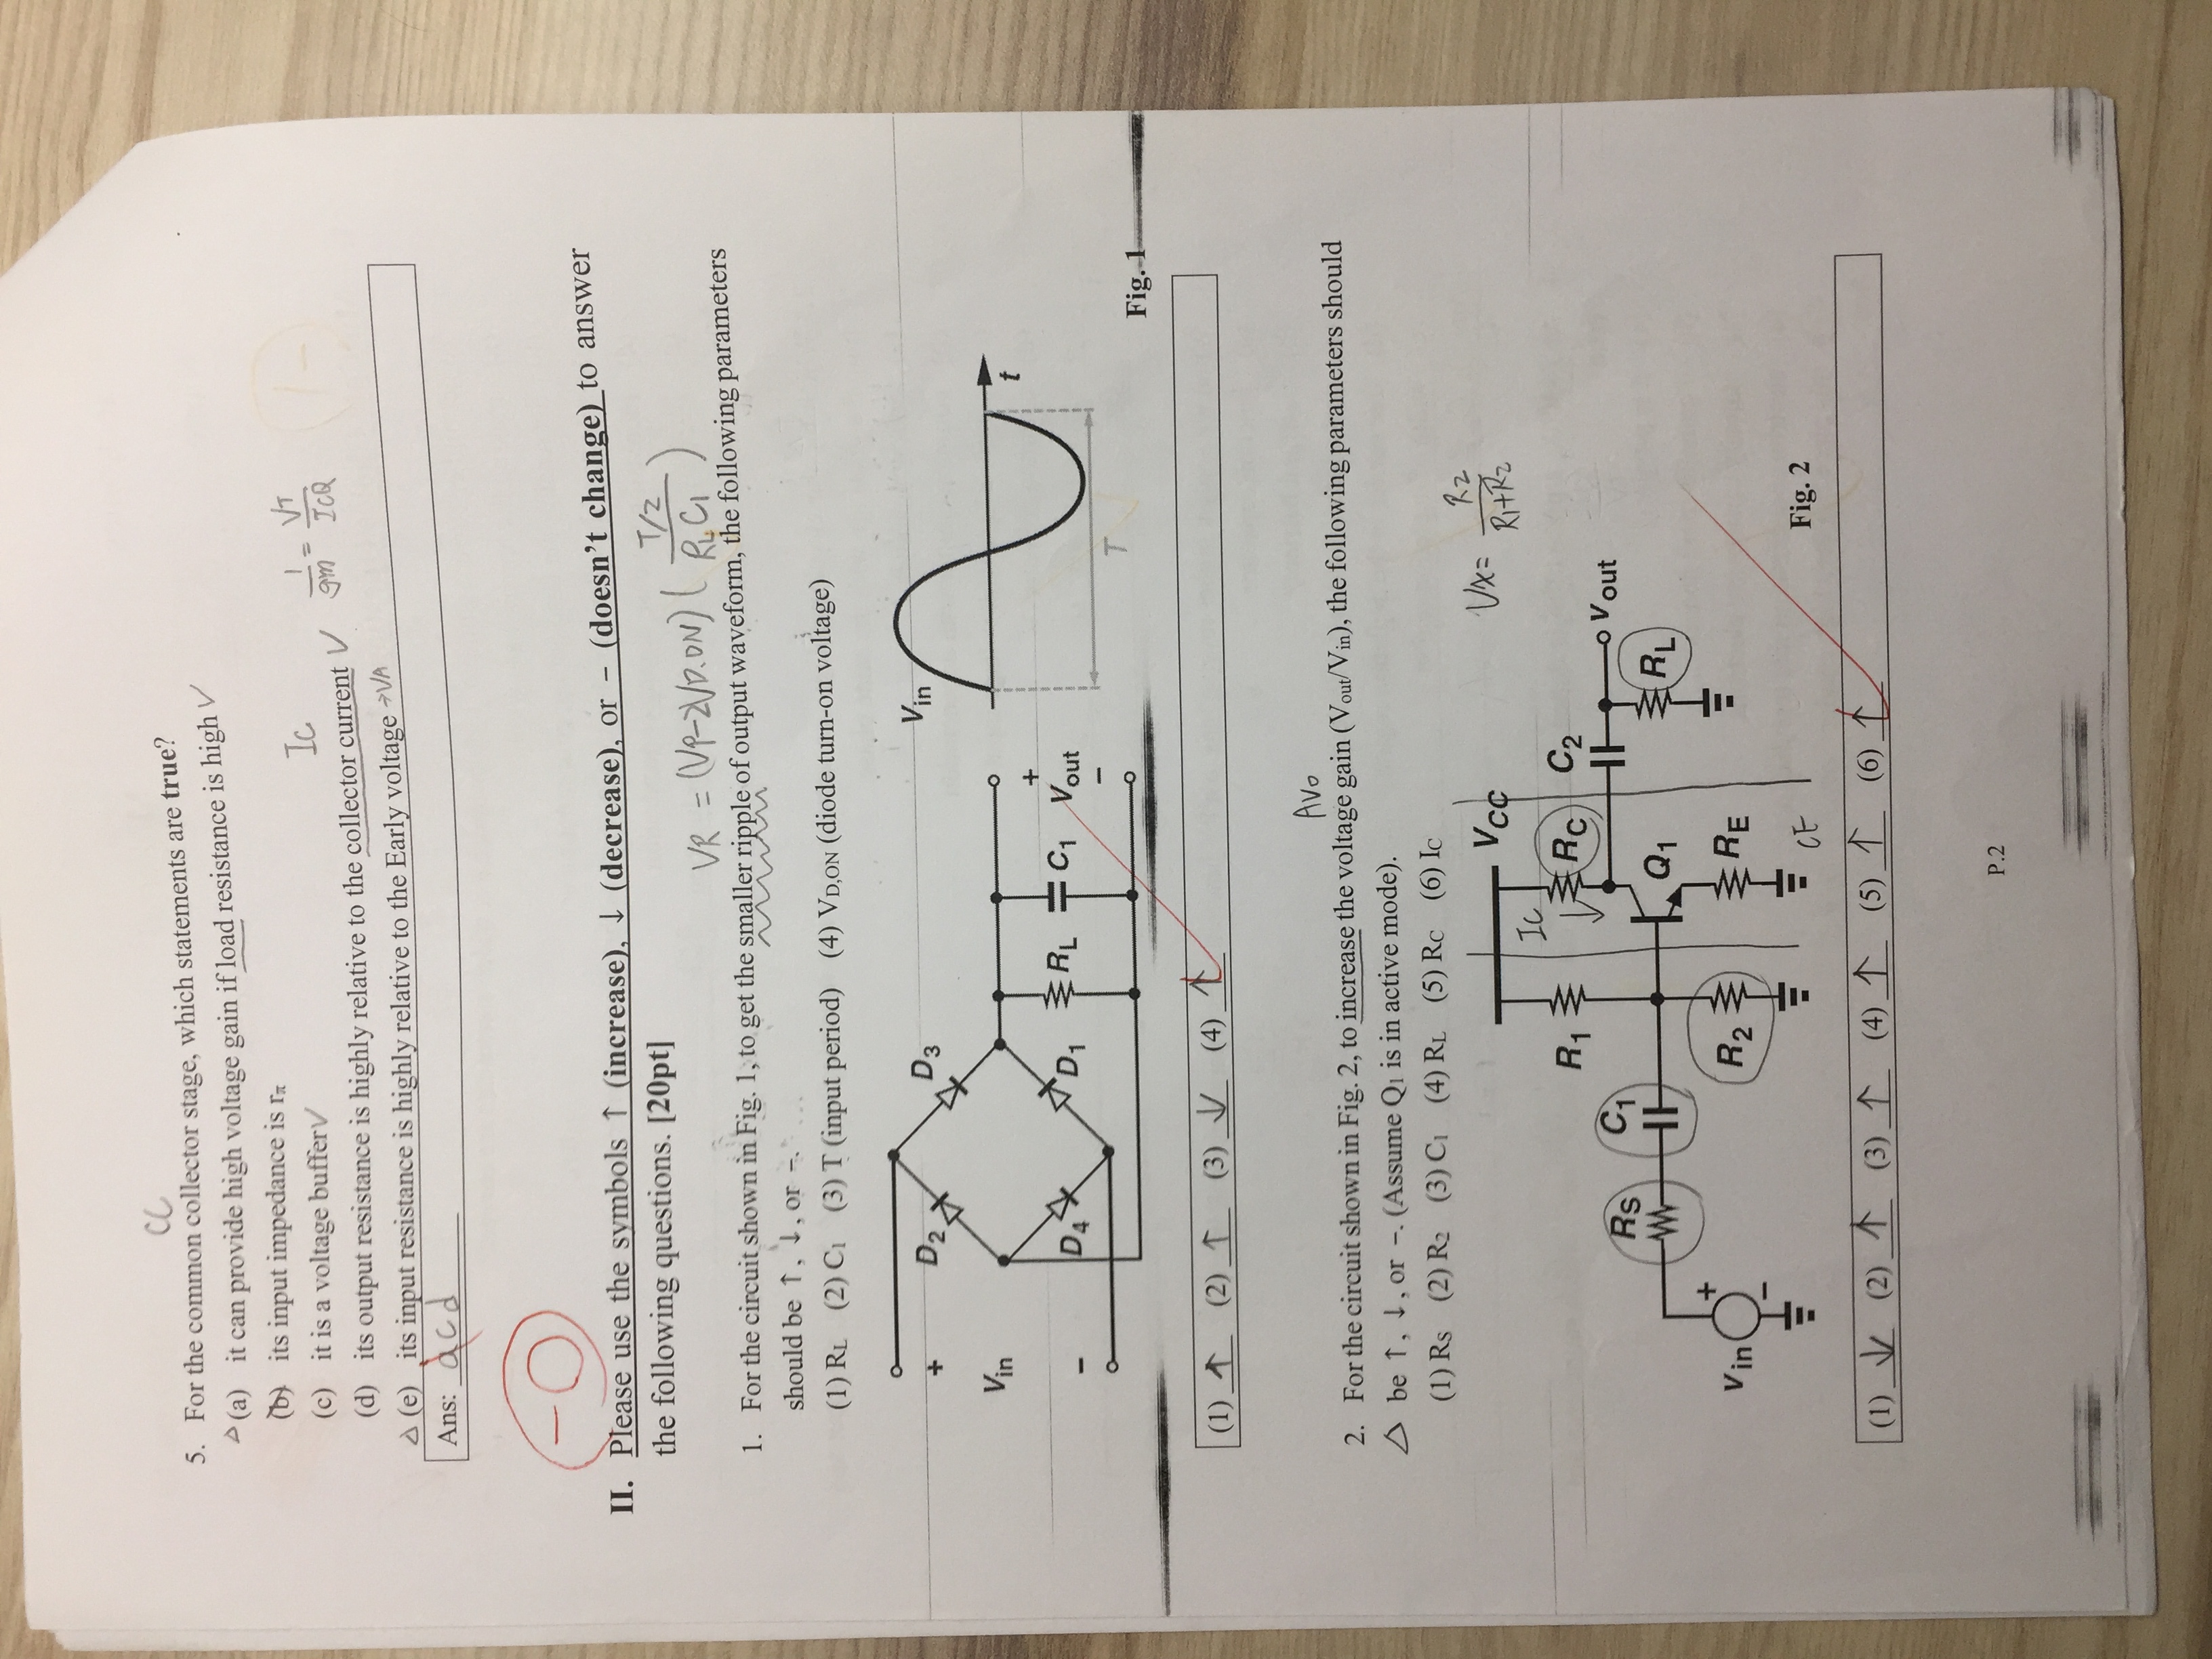 CC
5. For the common collector stage, which statements are true?
△ (a) it can provide high voltage gain if load resistance is high ✓
(b) its input impedance is rπ
(c) it is a voltage buffer ✓
Ic
(d) its output resistance is highly relative to the collector current ✓ 1/gm = VT/ICQ
△ (e) its input resistance is highly relative to the Early voltage →VA
Ans: acd
-1
-0
II. Please use the symbols ↑ (increase), ↓ (decrease), or − (doesn't change) to answer
the following questions. [20pt]
VR = (VP-2VD.ON) ( T/2 / RLC1 )
1. For the circuit shown in Fig. 1, to get the smaller ripple of output waveform, the following parameters
should be ↑, ↓, or −.
(1) RL (2) C1 (3) T (input period) (4) VD,ON (diode turn-on voltage)
+
Vin
−
D2
D3
D4
D1
RL
C1
+
Vout
−
Vin
t
T
Fig. 1
(1) ↑ (2) ↑ (3) ↓ (4) ↑
Avo
2. For the circuit shown in Fig. 2, to increase the voltage gain (Vout/Vin), the following parameters should
△ be ↑, ↓, or −. (Assume Q1 is in active mode).
(1) RS (2) R2 (3) C1 (4) RL (5) RC (6) IC
Vx= R2 / R1+R2
VCC
Ic
R1
RC
C2
Vout
RS
C1
Q1
RL
Vin
+
−
R2
RE
CE
Fig. 2
(1) ↓ (2) ↑ (3) ↑ (4) ↑ (5) ↑ (6) ↑
P.2